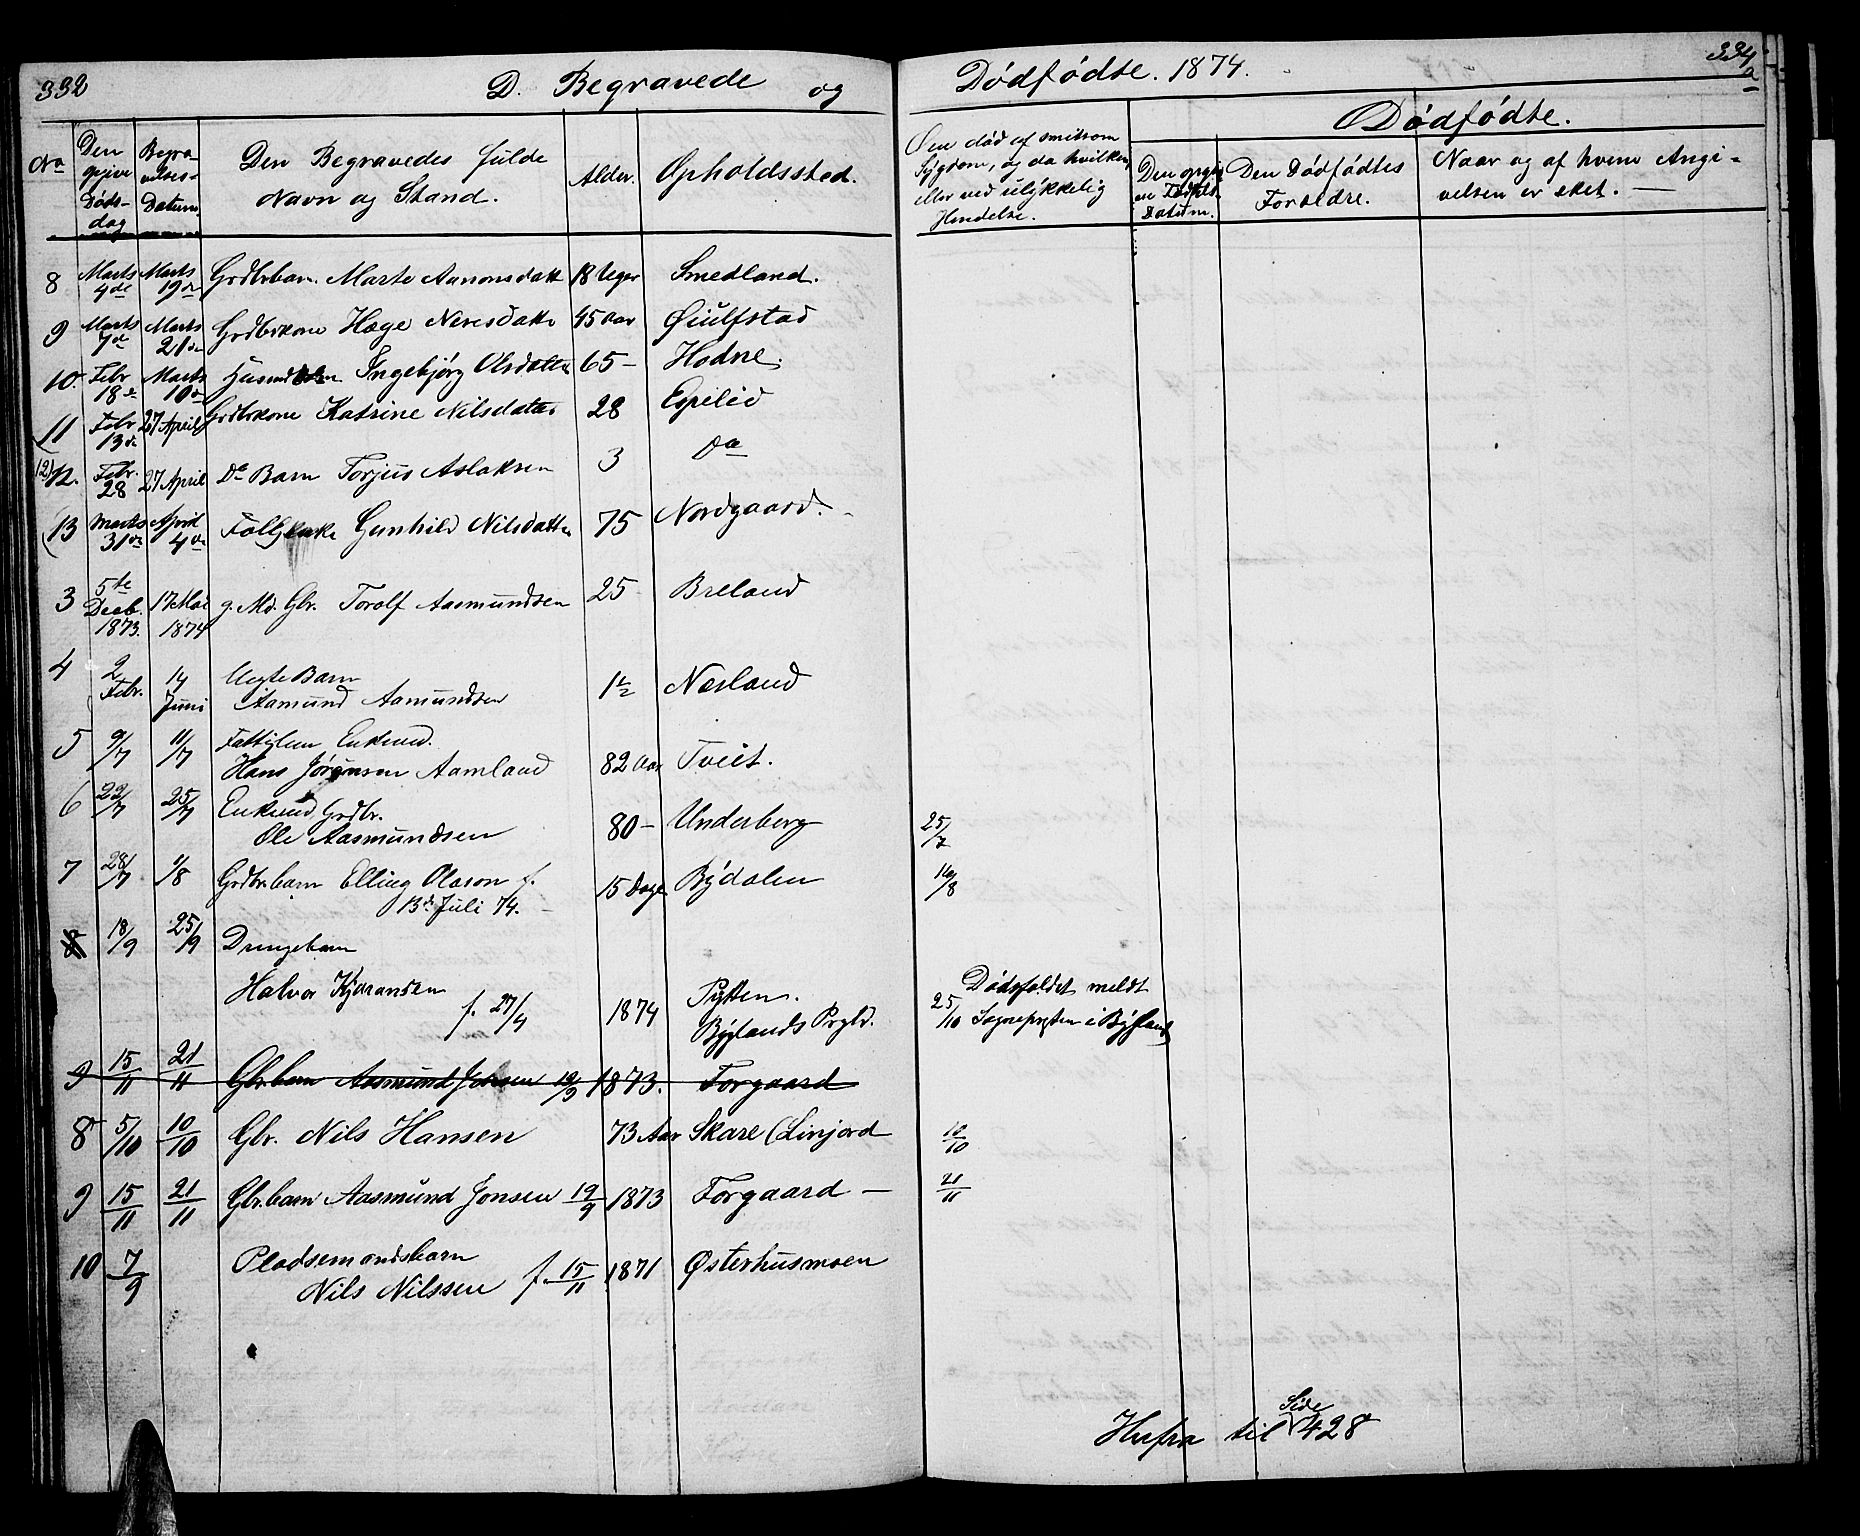 332
D. Begravede og Dødfødte. 1874.
334
a
No
Den
opgivne
Døds-
dag
Begra-
velses-
Datum
Den Begravedes fulde
Navn og Stand.
Alder.
Opholdssted.
Om død af smitsom
Sygdom, og da hvilken,
eller ved ulykkelig
Hændelse.
Dødfødte.
Den opgiv-
ne Fødsels
Datum.
Den Dødfødtes
Forældre.
Naar og af hvem Angi-
velsen er sket. —
8 Marts 4de Marts 19de Grdbrbarn. Marte Aanonsdatt 18 Uger Smedland.
9 Marts 7de Marts 21de Grdbrkone Hæge Neresdatte 45 Aar Øiulfstad
10. Febr 18de Marts 10de Ingebjørg Olsdatte 65 — Hodne.
11 Febr 13de 27 April Grdbrkone Katrine Nilsdatter 28 Espelid
12. Febr. 28 27 April Do Barn Torjus Aslaksen 3 Do
13 Marts 31de April 4de Gunhild Nilsdatte 75 Nordgaard.
3 5te Decb. 1873. 17 Mai 1874 g. Md. Gbr. Torolf Aasmundsen 25 Breland
4 2 Febr. 14 Juni Uegte Barn
Aamund Aamundsen 1½ Næsland
5 9/7 11/7 Fattiglem Enkemd.
Hans Jørgensen Aamland 82 Aar Tveit.
6 22/7 25/7 Enkemd Grdbr.
Ole Aasmundsen 80 — Underberg 25/7
7 28/7 1/8 Grdbr.barn Elling Olason f.
13de Juli 74. — 15 Dage Bÿdalen 16/8
8 18/9 25/9 Drengebarn
Halvor Kjøransen f. 27/4 1874 Pytten.
Bÿglands Prgld. 25/10 Dødsfaldet meldt
Sognepræsten i Bÿgland
9 15/11 21/11 Gbr.barn Aasmund Jonsen 19/9 1873. Forgaard
8 5/10 10/10 Gbr. Nils Hansen 73 Aar Skare (Linjord 10/10
9 15/11 21/11 Gbr.barn Aasmund Jonsen 19/9 1873 Forgaard — 21/11
10 7/9 Pladsemandsbarn
Nils Nilssen f. 15/11 1871 Østerhusmoen
Herfra til Side 428